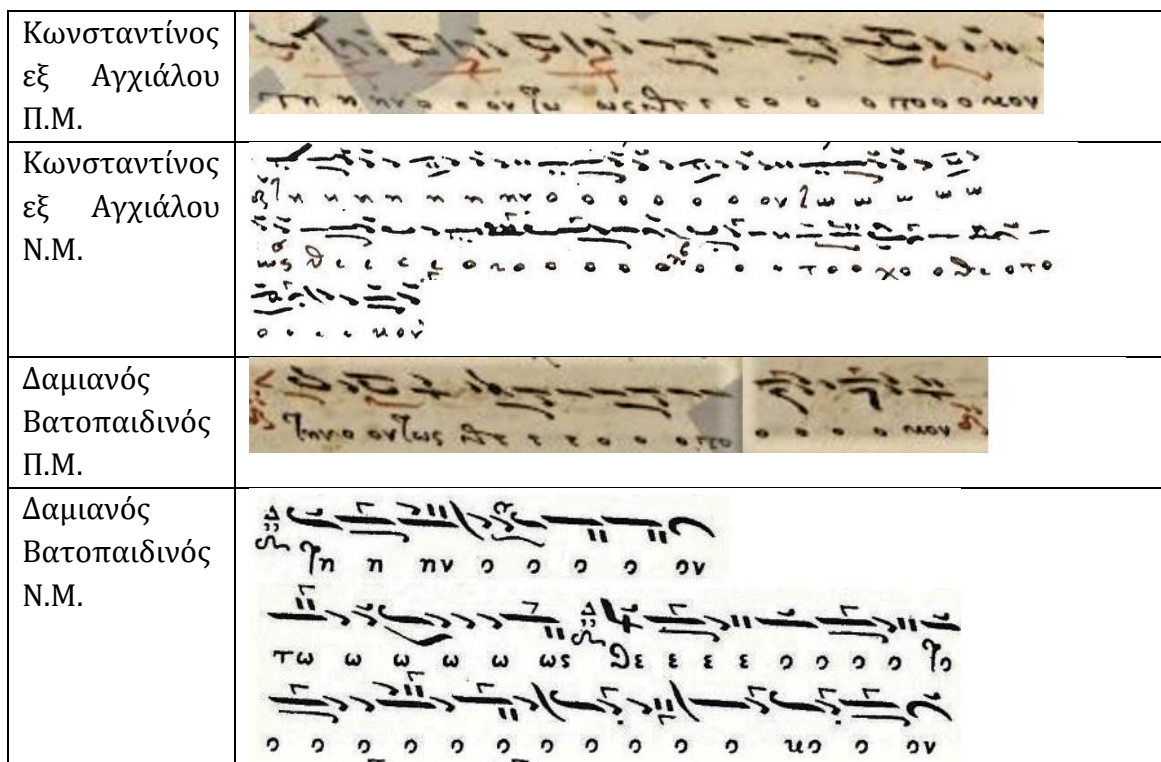 Κωνσταντίνος
εξ Αγχιάλου
Π.Μ.
τη η ην ο ο ον τω ως θε ε ε ο ο ο το ο ο κον
Κωνσταντίνος
εξ Αγχιάλου
Ν.Μ.
η η η η η ην ο ο ο ο ο ο ον τω ω ω ω ω
ως θε ε ε ε ο ο ο ο ο ο ο ο ο το ο χο ο θε ο το
ο κον
Δαμιανός
Βατοπαιδινός
Π.Μ.
την ο ον τως θε ε ε ο ο ο το ο ο ο ο κον
Δαμιανός
Βατοπαιδινός
Ν.Μ.
Τη η ην ο ο ο ο ον
τω ω ω ω ω ως θε ε ε ε ο ο ο ο το
ο ο ο ο ο ο ο ο ο ο κο ο ον